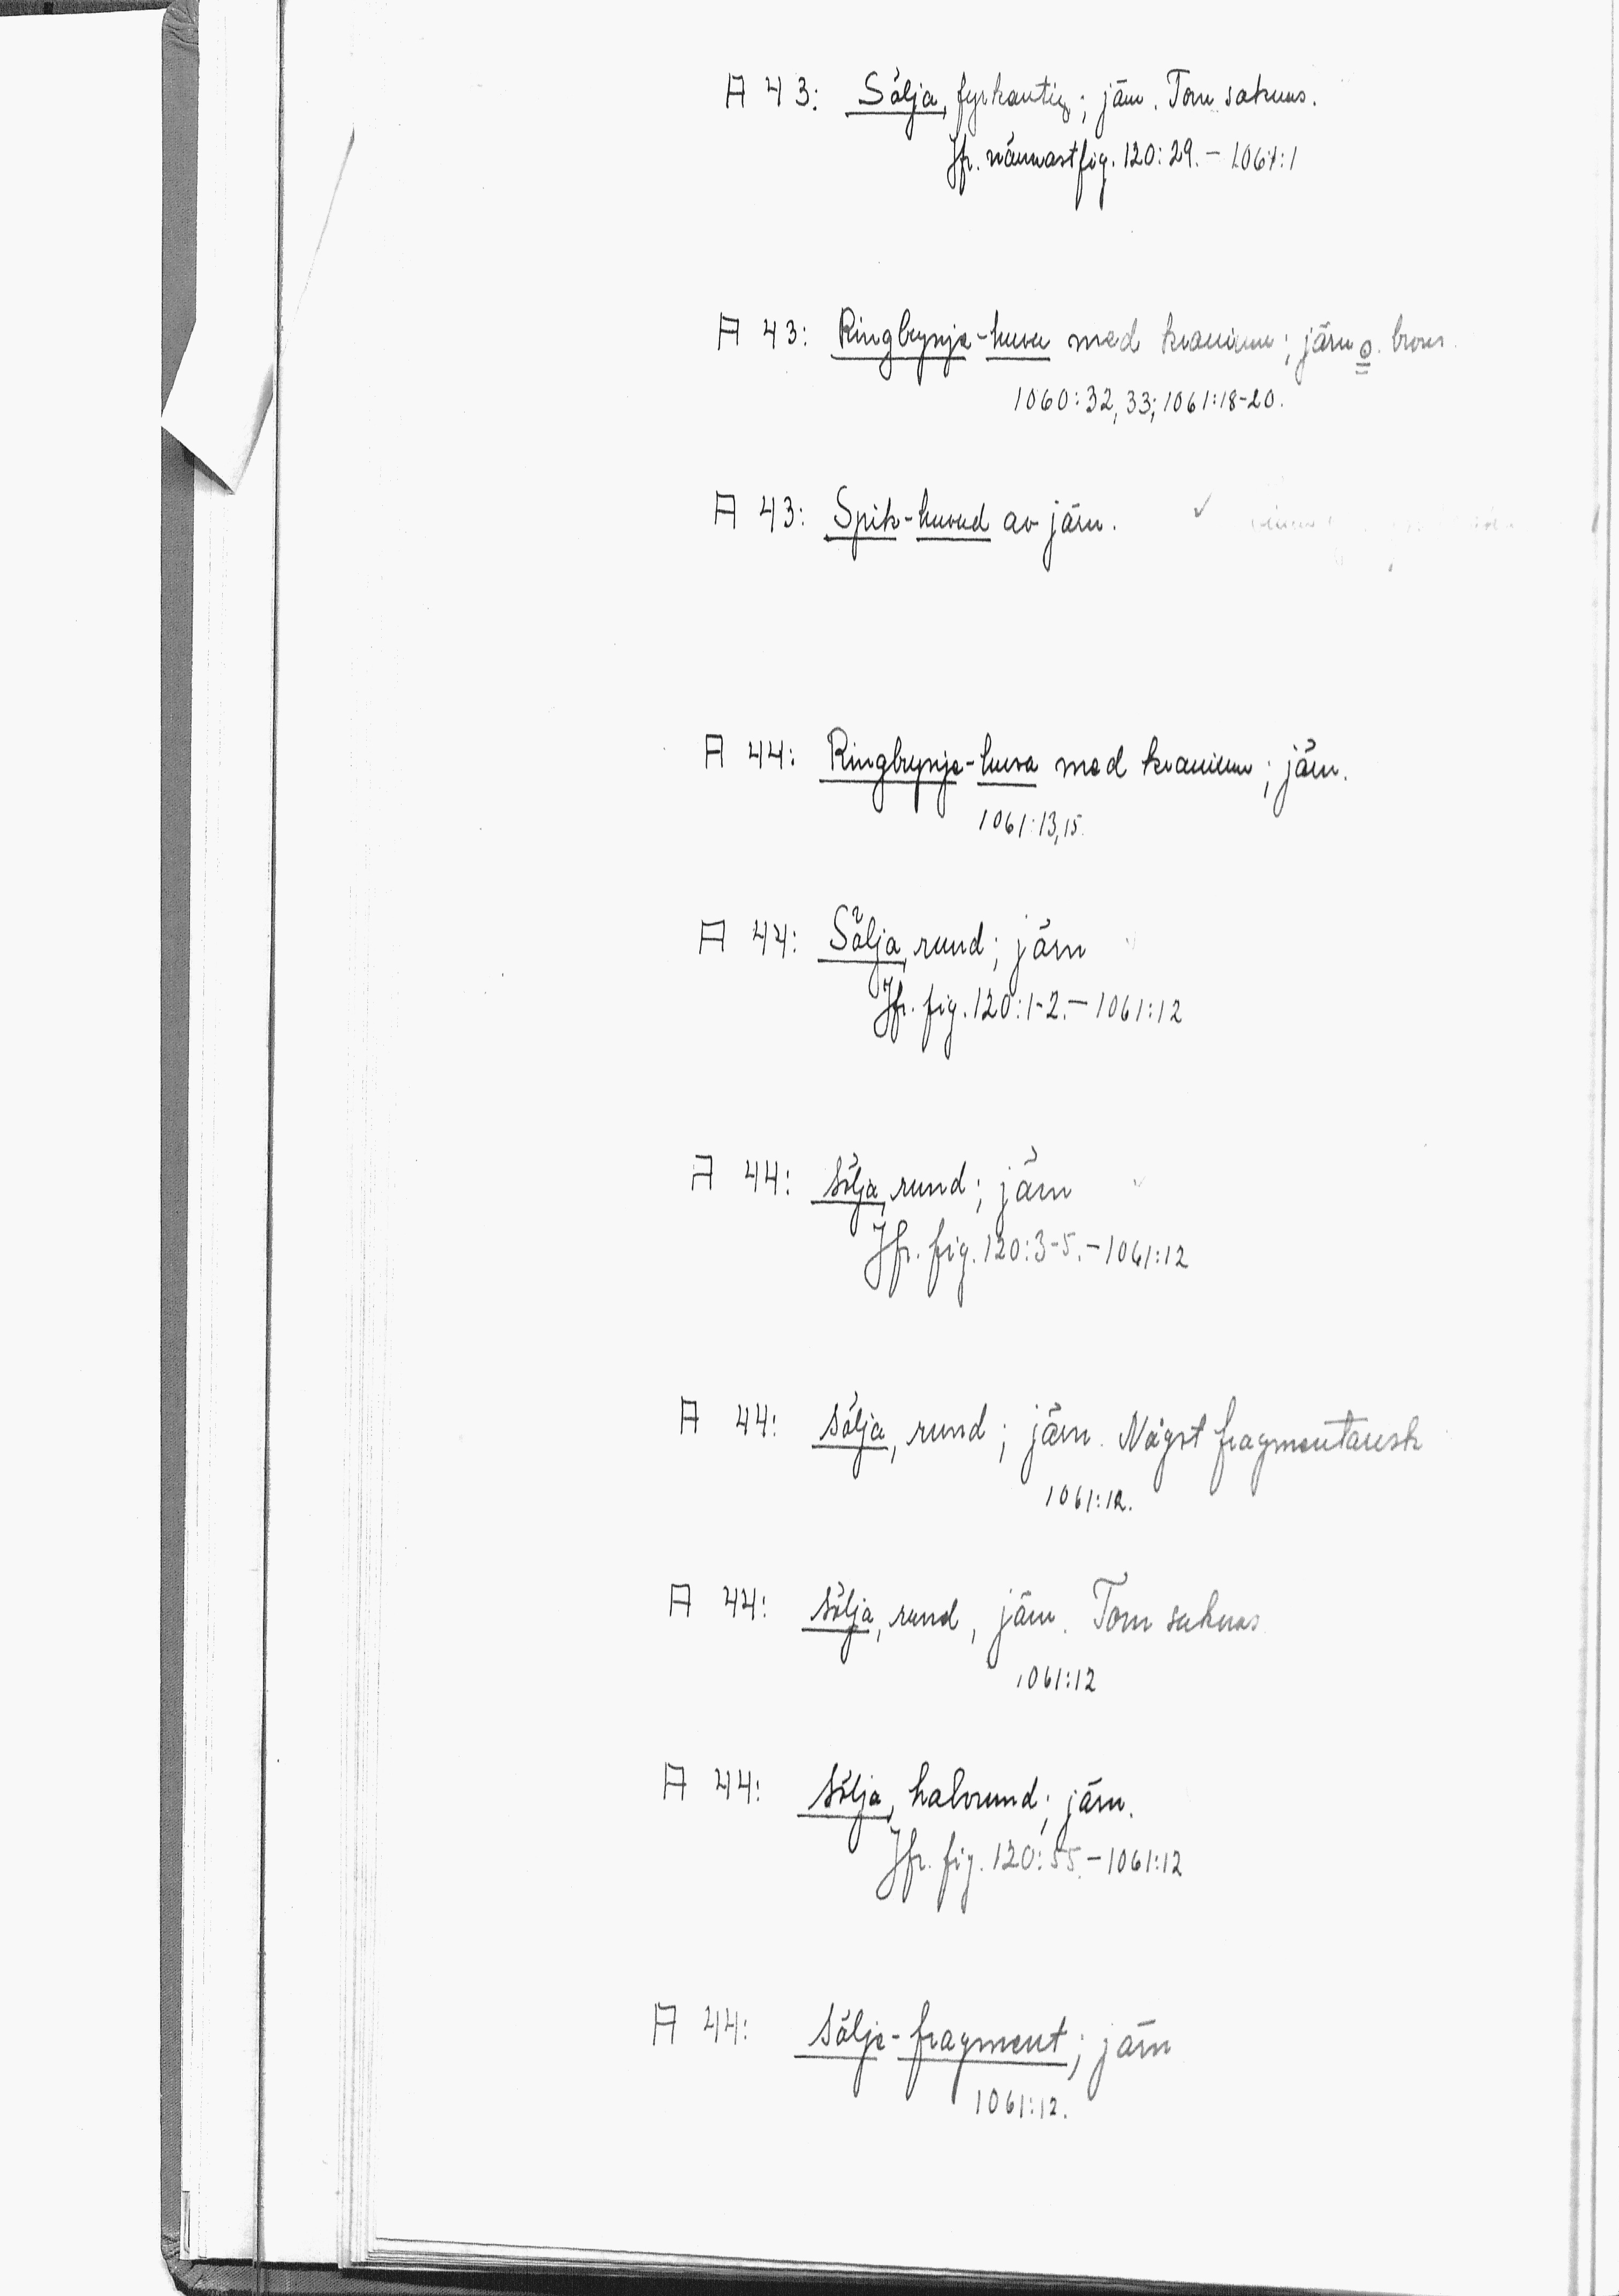 A 43: Sölja, fyrkantig; järn. Torn saknas.
Jfr. närmast fig. 120:29. – 1061:1
A 43: Ringbrynje-huva med kranium; järn o. brons.
1060:32, 33; 1061:18-20.
A 43: Spik-huvud av järn. ✓
A 44: Ringbrynje-huva med kranium; järn.
1061:13,15.
A 44: Sölja, rund; järn
Jfr. fig. 120:1-2. – 1061:12
A 44: Sölja, rund; järn
Jfr. fig. 120:3-5. – 1061:12
A 44: Sölja, rund; järn. Något fragmentarisk
1061:12.
A 44: Sölja, rund, järn. Torn saknas
1061:12
A 44: Sölja, halvrund; järn.
Jfr. fig. 120:55. – 1061:12
A 44: Sölje-fragment; järn
1061:12.